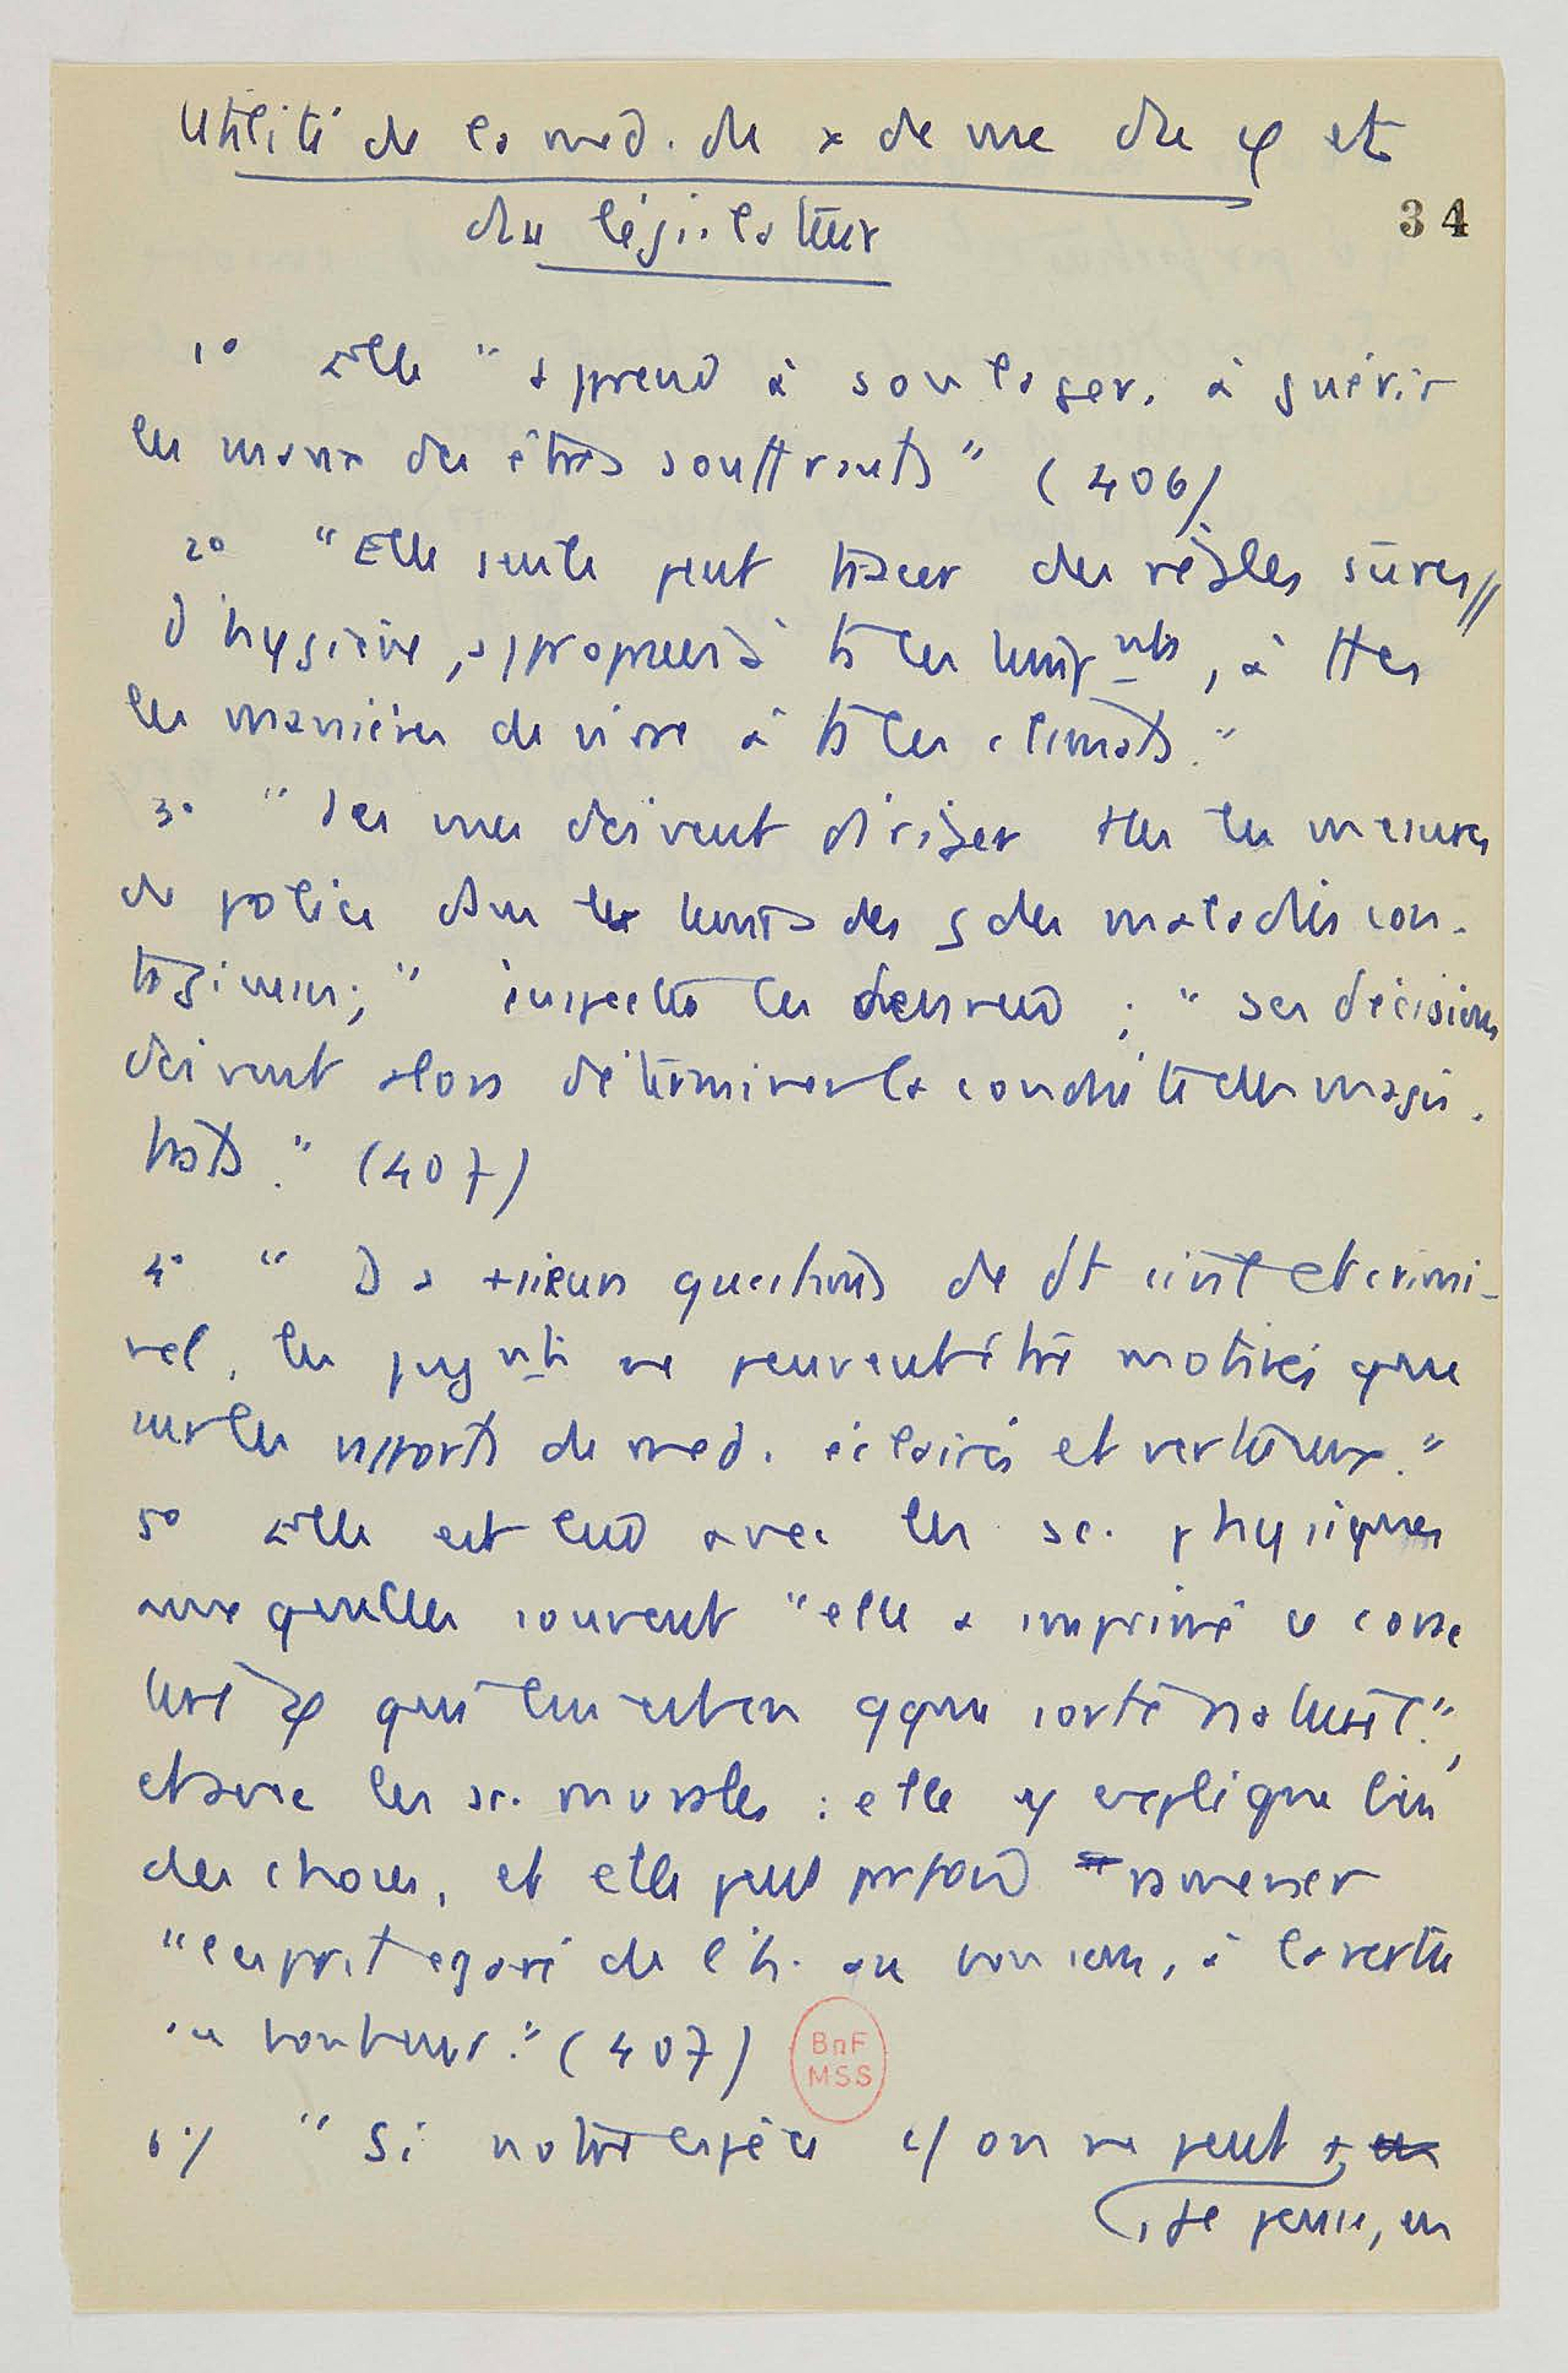 Utilité de la med. du x de vue du φ et
du législateur
34
1° Elle "apprend à soulager, à guérir
les maux des êtres souffrants" (406)
2° "Elle seule peut tracer des règles sûres
d'hygiène, appropriées à ts les temp nts, à ttes
les manières de vivre à ts les climats."
3° "Ses vues doivent diriger ttes les mesures
de police dans les temps des maladies con-
tagieuses;" inspecte les denrées ; "ses décisions
doivent alors déterminer la conduite des magis-
trats." (407)
4° " Ds +sieurs questions de dt civil et crimi-
nel, les jug nts ne peuvent être motivés que
sur les rapports de med. éclairés et vertueux."
5° Elle est liée avec les sc. physiques
auxquelles souvent "elle a imprimé ce carac
tère φ qui lui est en qque sorte naturel",
et avec les sc. morales : elle y explique bien
des choses, et elle peut parfois ramener
"l'esprit égaré de l'h. au bon sens, à la vertu
au bonheur." (407)
6°/ "Si notre espèce c/ on ne peut
, je pense, en
BnF
MSS